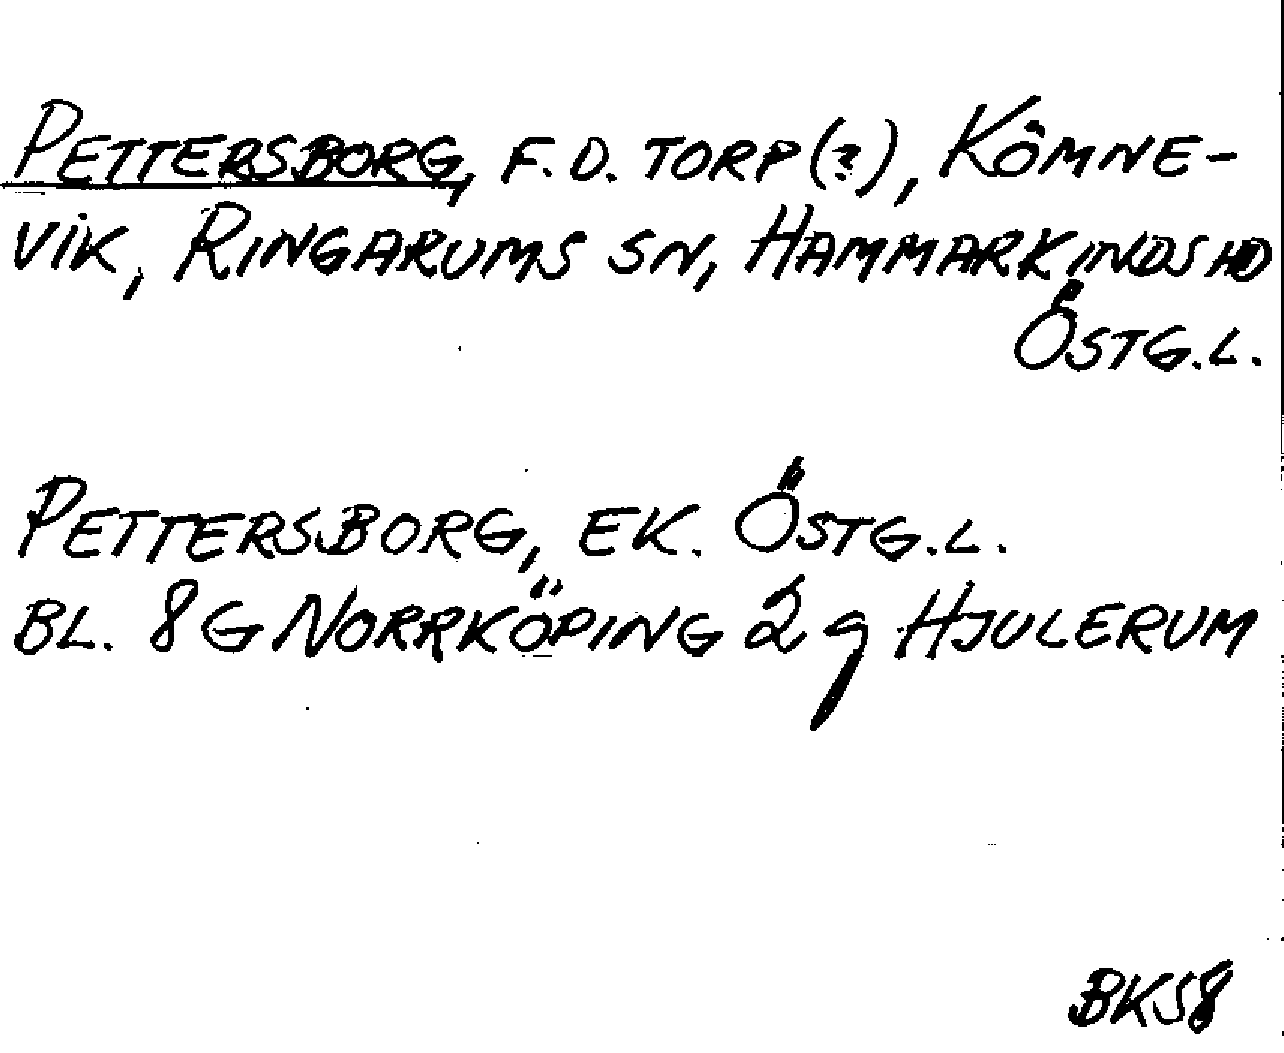 PETTERSBORG, F.D. TORP (?), KÖMNE-
VIK, RINGARUMS SN, HAMMARKINDS HD
ÖSTG.L.
PETTERSBORG, EK. ÖSTG.L.
BL. 8G NORRKÖPING 2g HJULERUM
BKS8